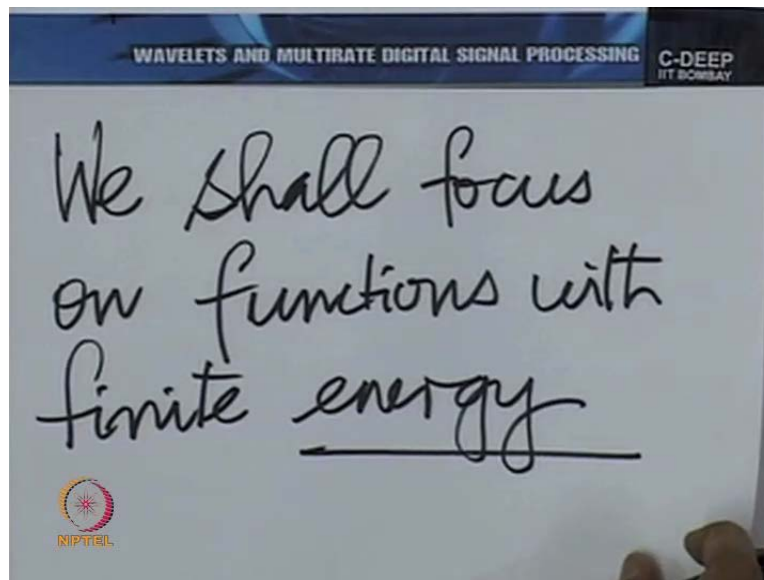 WAVELETS AND MULTIRATE DIGITAL SIGNAL PROCESSING
C-DEEP
IIT BOMBAY
We shall focus
on functions with
finite energy
NPTEL